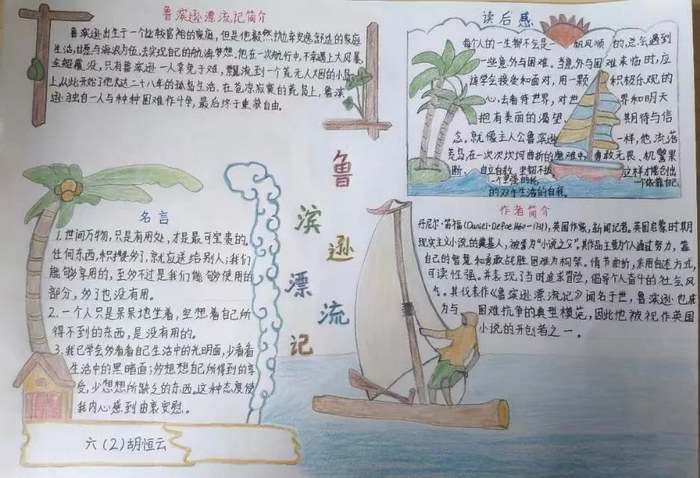 鲁滨逊漂流记简介
鲁滨逊出生于一个比较富裕的家庭，但是他毅然抛弃安逸舒适的家庭
生活，甘愿与海浪为伍，去实现自己的航海梦想，他在一次航行中，不幸遇上大风暴
船翻覆没，只有鲁滨逊一人幸免于难，飘流到一个荒无人烟的小岛
上，从此开始了他长达二十八年的孤岛生活。在荒凉寂寞的荒岛上，鲁滨
逊独自一人与种种困难作斗争，最后终于重获自由。
读后感
每个人的一生都不会是一帆风顺的，总会遇到
一些意外与困难。当意外与困难来临时，应
该学着接受和面对，用一颗积极乐观的
心，去看待世界，对世界和明天
把有美丽的渴望 期待与信
念，就像主人公鲁滨逊一样，他流落
荒岛，在一次次坎坷曲折的磨难中勇敢无畏、机警果
断、自立自救
的对于生活的自我。
名言
1.世间万物，只是有用处，才是最可宝贵的。
任何东西，积攒多了，就应送给别人；我们
能够享用的，至多不过是我们能够使用的
部分，多了也没有用。
2.一个人只是呆呆地坐着，空想着自己所
得不到的东西，是没有用的。
3.我已学会多看看自己生活中的光明面，少看看
生活中的黑暗面；多想想自己所得到的享
受，少想想所缺乏的东西。这种态度使
我内心感到由衷安慰。
鲁滨逊漂流记
作者简介
丹尼尔·笛福(Daniel·Defoe 1731)，英国作家，新闻记者。英国启蒙时期
现实主义小说的奠基人，被誉为“小说之父”。其作品主要为个人通过努力，靠
自己的智慧和勇敢战胜困难为构架。情节曲折，采用自述方式，
可读性强。并表现了当时追求冒险，倡导个人奋斗的社会风
气。其代表作《鲁滨逊漂流记》闻名于世，鲁滨逊也成
为与困难抗争的典型模范，因此他被视作英国
小说的开创者之一。
六(2)胡恒云